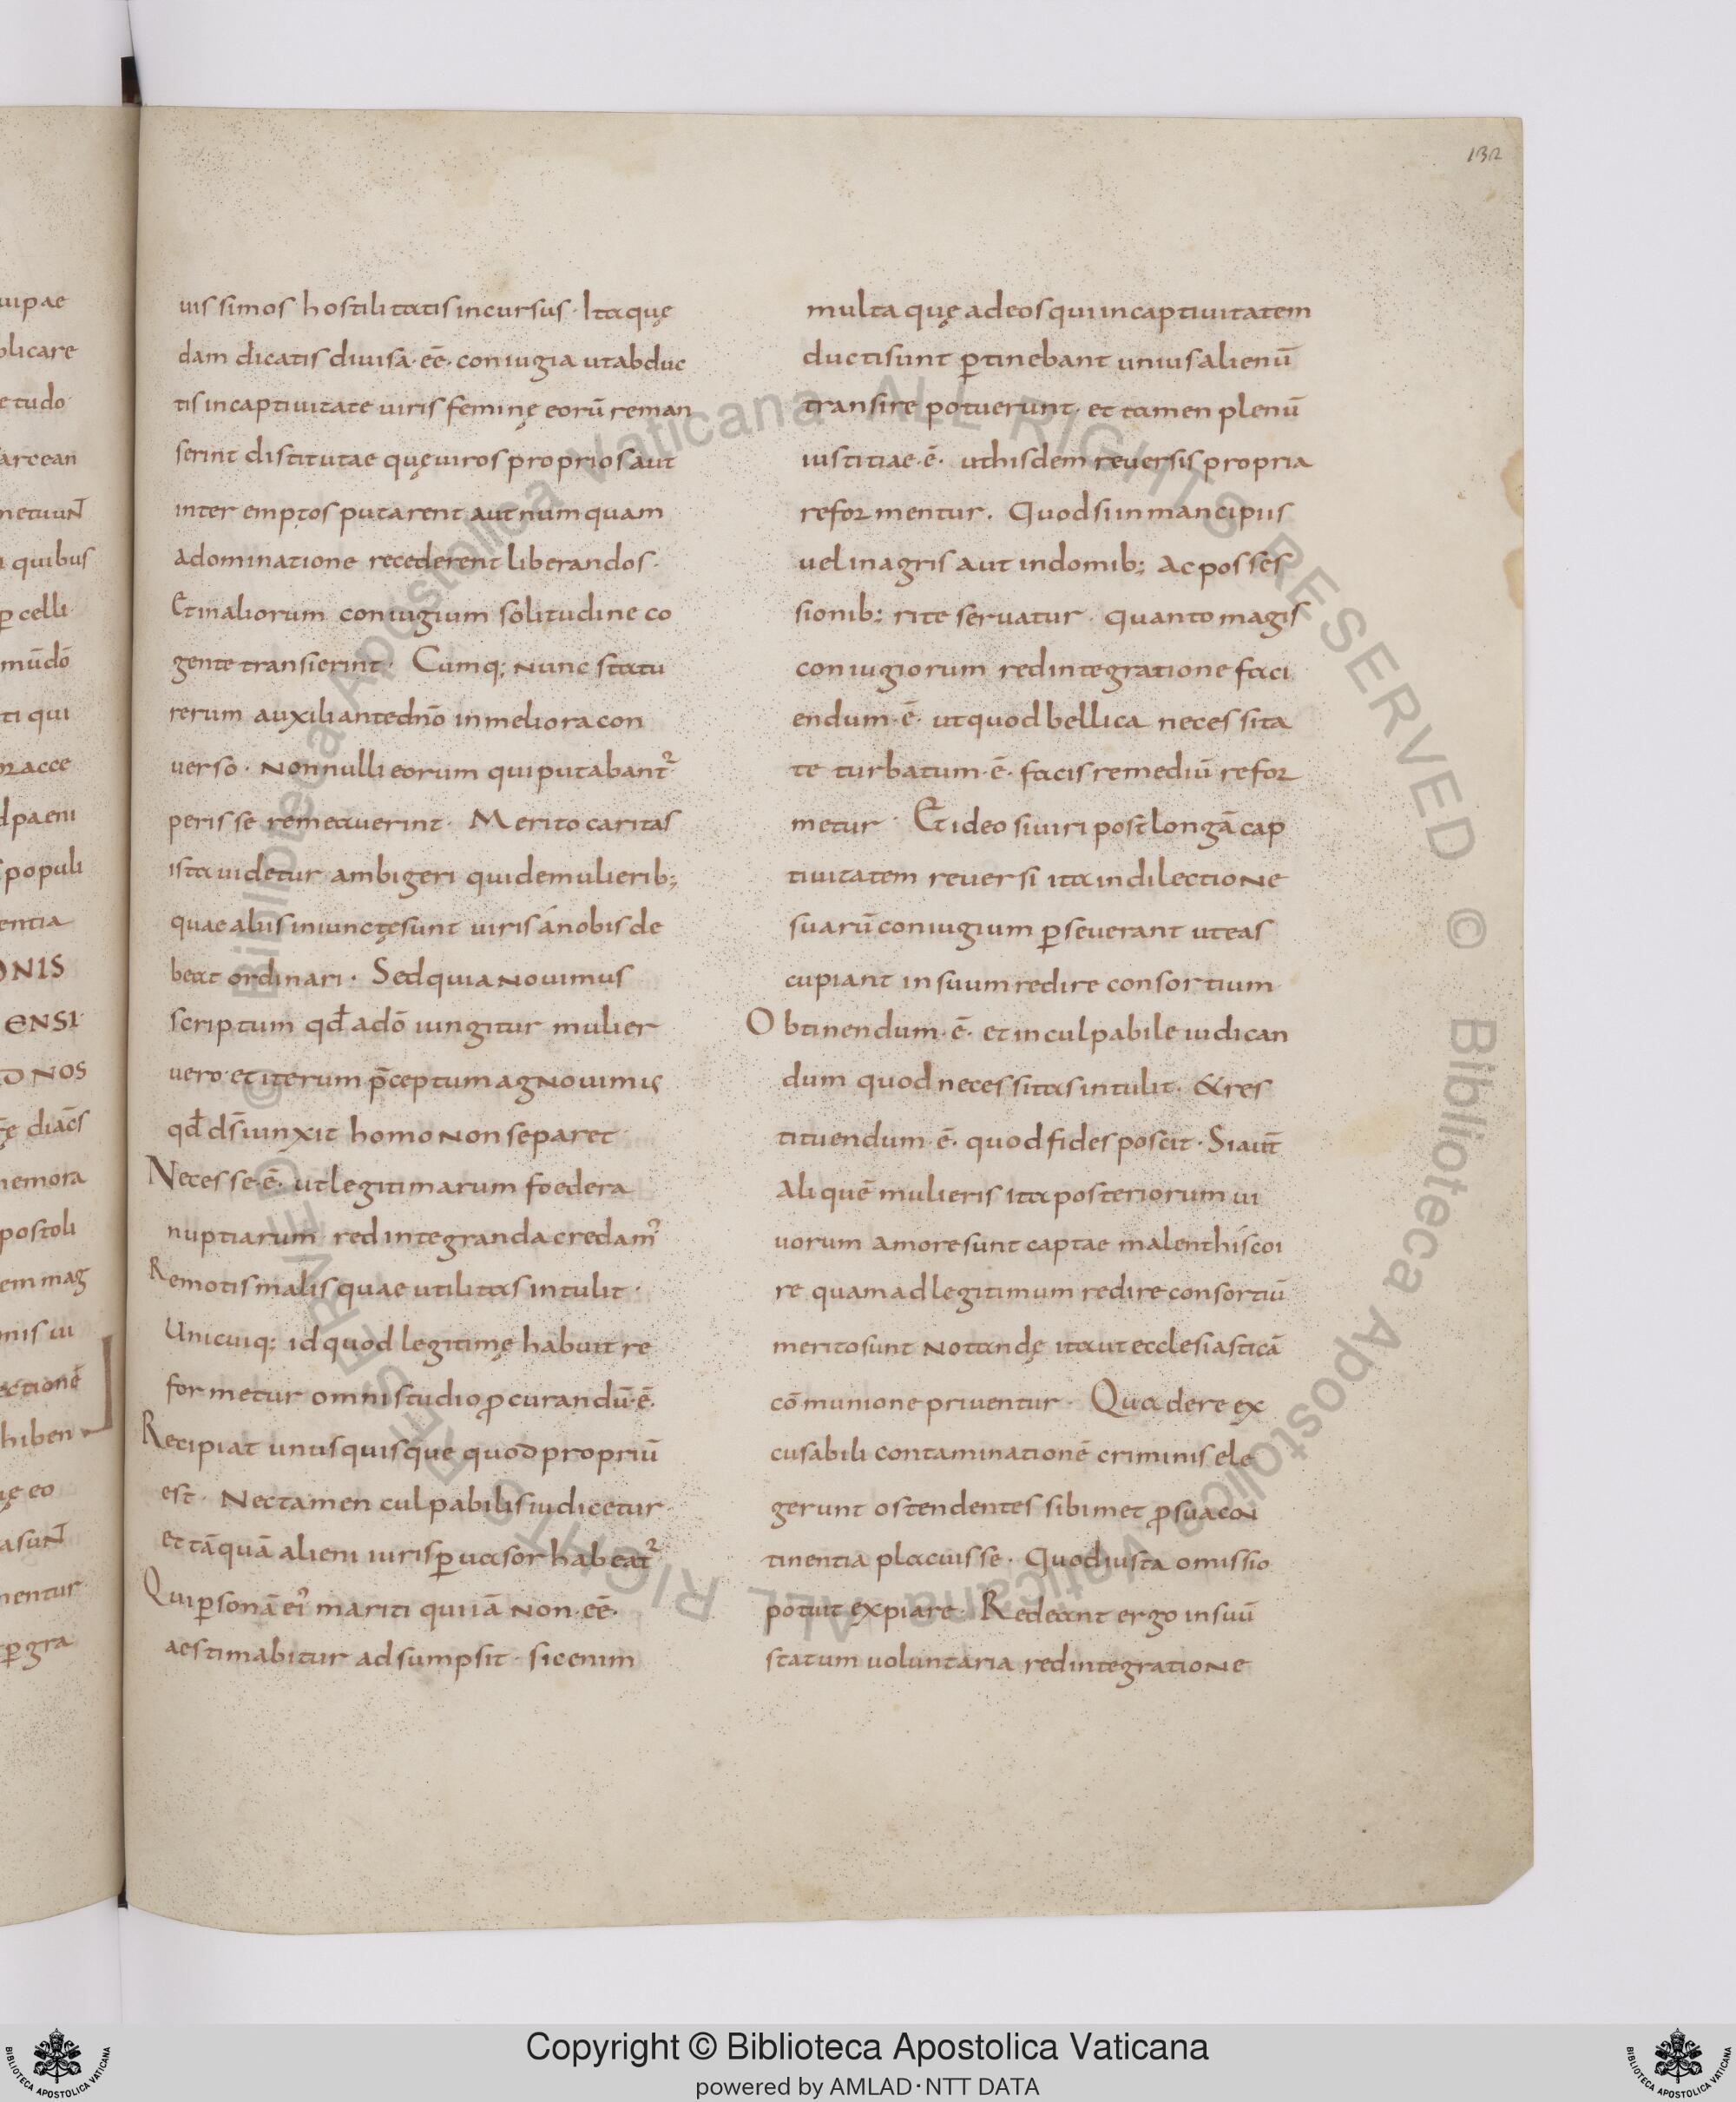 132
uipae
plicare
etudo
arcean
netuuN̄
quibus
ꝑ celli
mūdō
ti qui
acce
dpaeni
populi
entia
ONIS
ENSI
NOS
diac̄s
nemora
postoli
em mag
nis ui
ectionē
hiben
ęeo
asuN̄
nentur
ꝑ gra
uissimos hostilitatis incursus · Ita quę
dam dicatis diuisa · eē · coniugia ut abduc
tis in captiuitate uiris feminę eorū reman
serint distitutae quę uiros proprios aut
interemptos putarent aut numquam
a dominatione recederent liberandos ·
Et in aliorum coniugium solitudine co
gente transierint · Cumq; nunc statu
rerum auxiliante dn̄o in meliora con
uerso · Nonnulli eorum qui putabant᷑
perisse remeauerint · Merito caritas
ista uidetur ambigeri quide mulierib;
quae aliis iniunctę sunt uiris á nobis de
beat ordinari · Sed quia nouimus
scriptum qđ a dō iungitur mulier
uero · et iterum p̄ceptum agnouimus
qđ ds̄ iunxit homo non separet
Necesse · ē · ut legitimarum foedera
nuptiarum redintegranda credam᷑
Remotis malis quae utilitas intulit ·
Unicuiq; id quod legitimę habuit re
formetur omni studio ꝓcurandū · ē ·
Recipiat unusquisque quod propriū
est · Nec tamen culpabilis iudicetur
et tāquā alieni iuris ꝑuasor habeat᷑
Qui ꝑsonā ei᷑ mariti qui iā non · eē ·
aestimabitur adsumpsit · sic enim
multa quę ad eos qui in captiuitatem
ducti sunt ꝑtinebant unius alienū
transire potuerunt · et tamen plenū
iustitiae · ē · ut hisdem reuersis propria
reformentur . Quod si in mancipiis
uel in agris aut in domib; ac posses
sionib; rite seruatur · quanto magis
coniugiorum redintegratione faci
endum · ē · ut quod bellica necessita
te turbatum · ē · facis remediū refor
metur · Et ideo si uiri post longā cap
tiuitatem reuersi ita in dilectione
suarū coniugium ꝑseuerant ut eas
cupiant in suum redire consortium
Obtinendum · ē · et inculpabile iudican
dum quod necessitas intulit · & res
tituendum · ē · quod fides poscit · Si aut̄
aliquē mulieris ita posteriorum ui
uorum amore sunt captae malent his coi
re quam ad legitimum redire consortiū
merito sunt notandę ita ut ecclesiasticā
cōmunione priuentur · Qua de re ex
cusabili contaminationē criminis ele
gerunt ostendentes sibimet ꝓ sua con
tinentia placuisse · Quod iusta omissio
potuit expiare · Redeant ergo in suū
statum uoluntaria redintegratione
© Biblioteca Apostolica Vaticana ALL RIGHTS RESERVED © Biblioteca Apostolica Vaticana ALL RIGHTS RESERVED
BIBLIOTECA APOSTOLICA VATICANA
Copyright © Biblioteca Apostolica Vaticana
powered by AMLAD·NTT DATA
BIBLIOTECA APOSTOLICA VATICANA